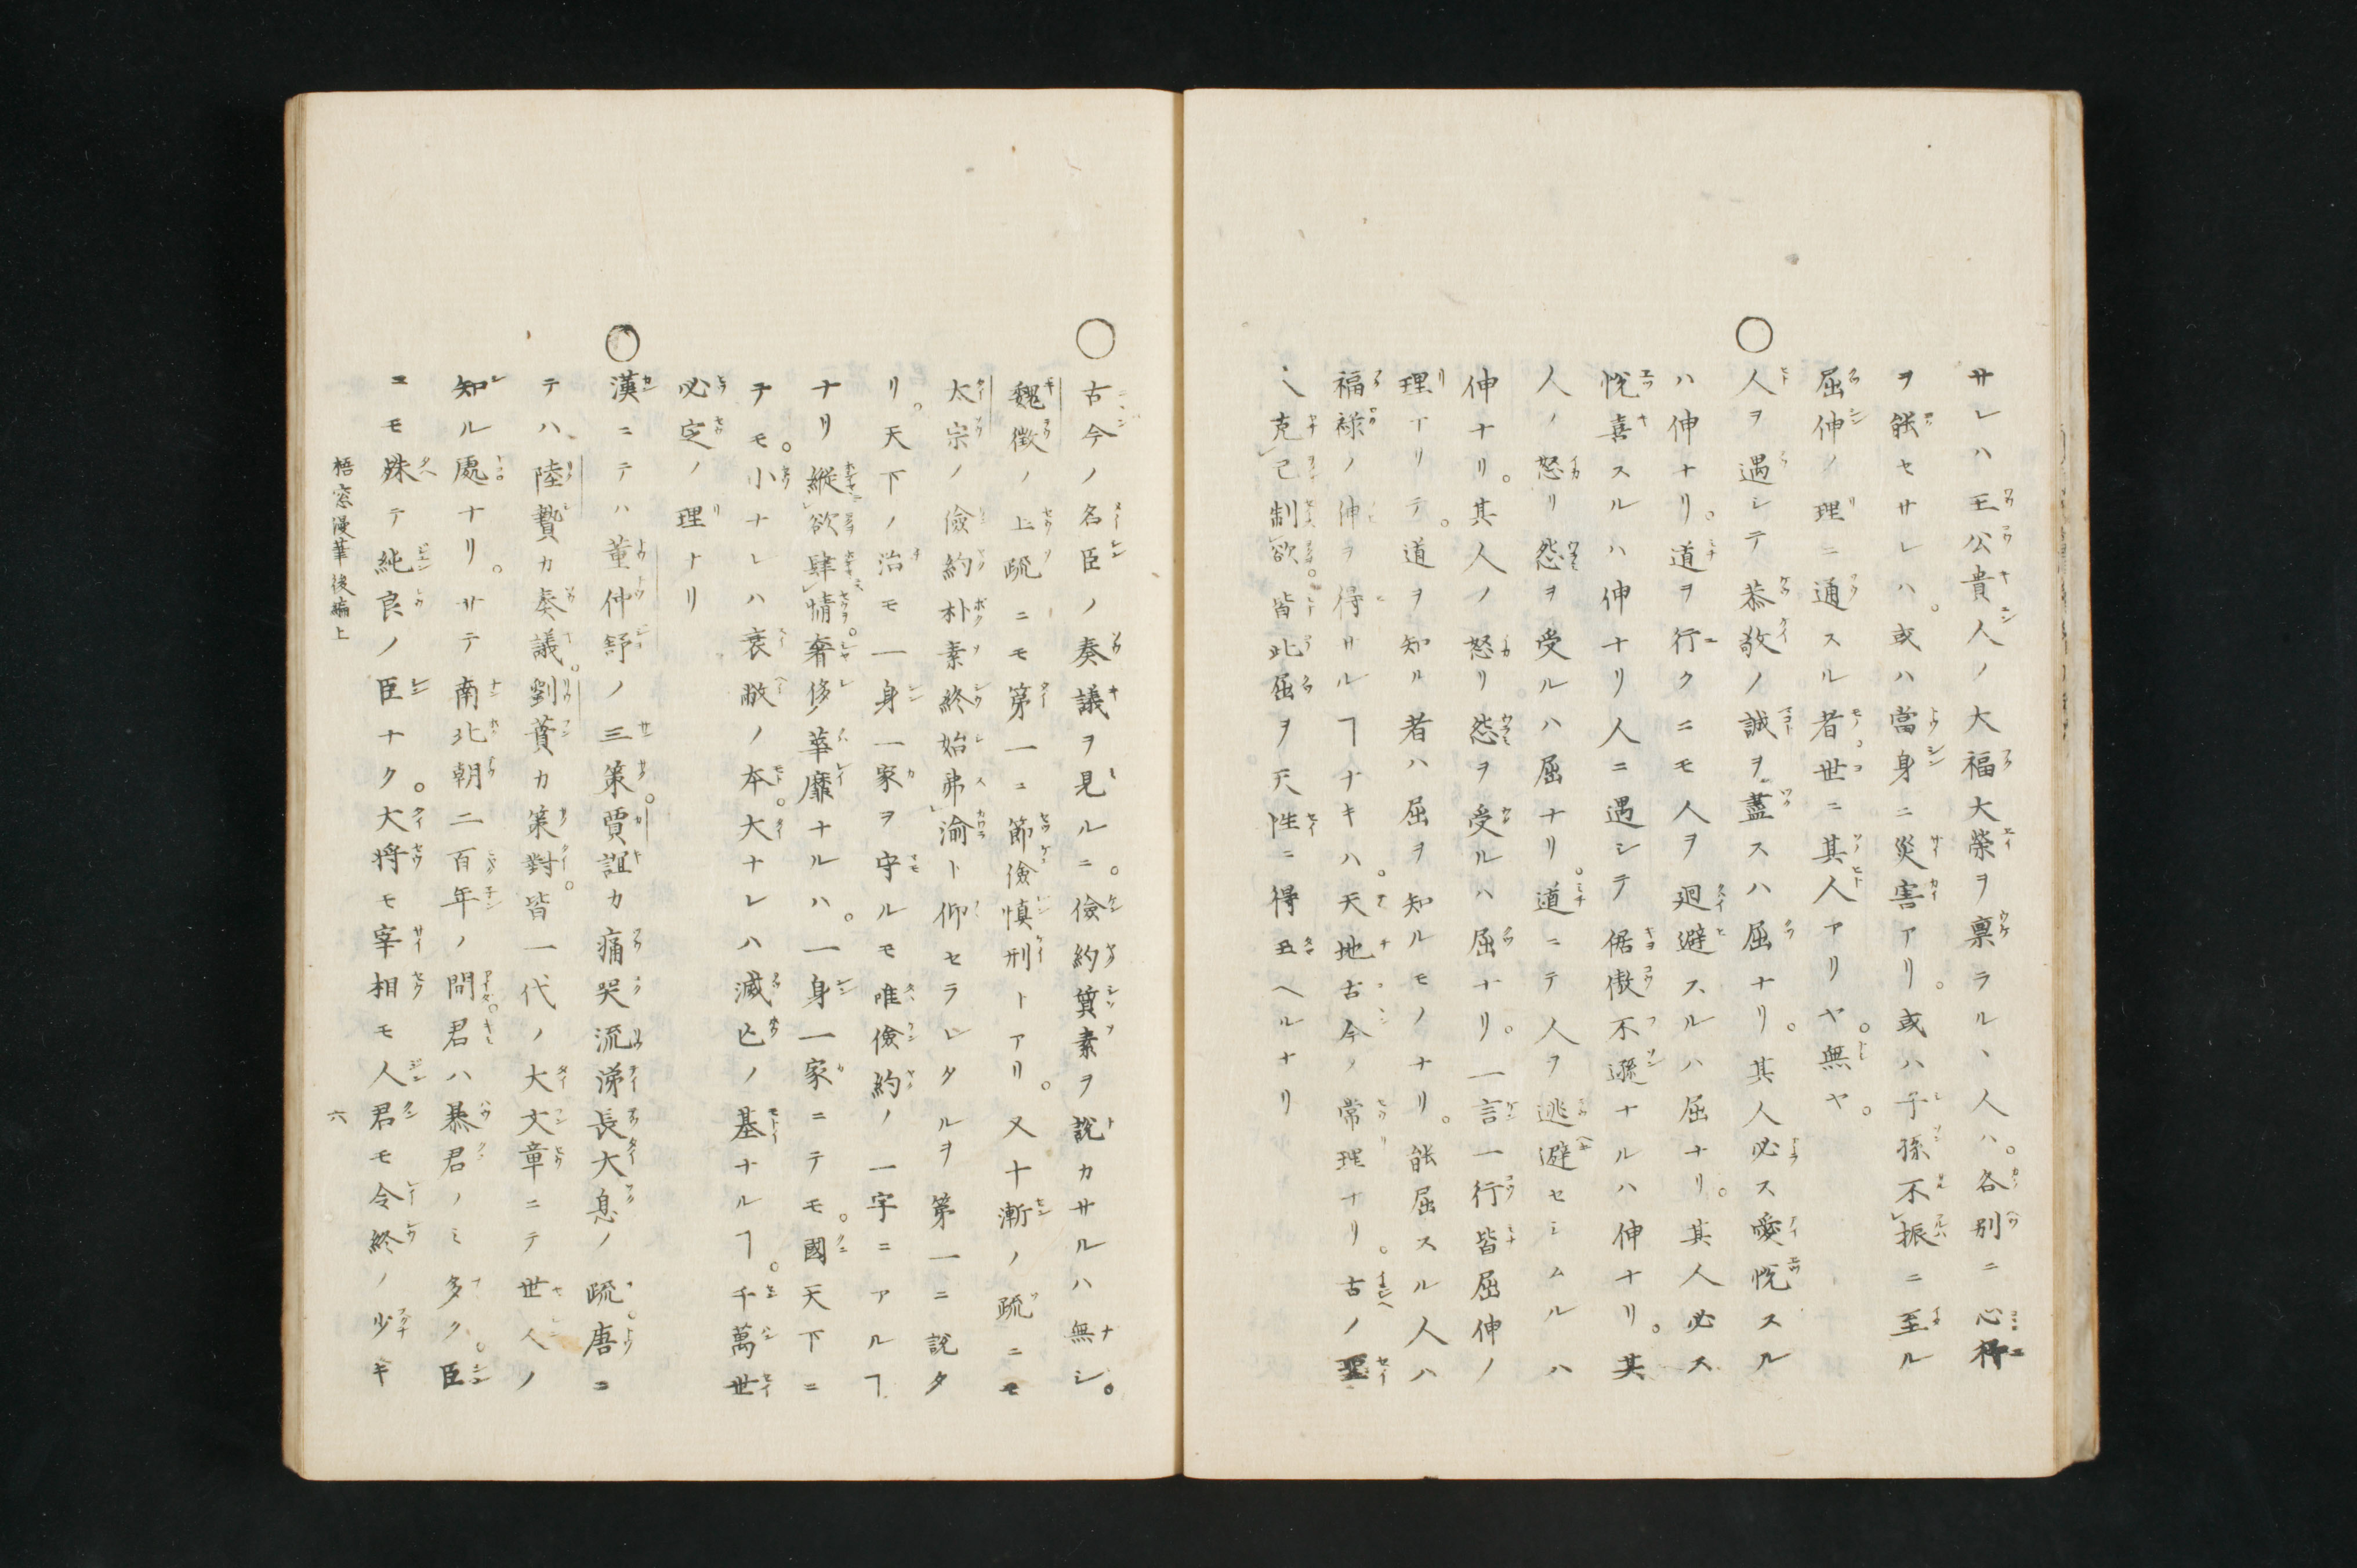 サレハ王公貴人ノ大福大榮ヲ禀ラルヽ人ハ。各別ニ心
ヲ能セサレハ。或ハ當身ニ災害アリ。或ハ子孫不振ニ至ル
屈伸ノ理ニ通スル者世ニ其人アリヤ。無ヤ。
○人ヲ遇シテ恭敬ノ誠ヲ盡スハ屈ナリ。其人必ス愛悦スル
ハ伸ナリ。道ヲ行クニモ人ヲ廻避スルハ屈ナリ。其人必ス
悦喜スルハ伸ナリ人ニ遇シテ倨傲不遜ナルハ伸ナリ。其
人ノ怒リ怨ヲ受ルハ屈ナリ。道ニテ人ヲ逃避セシムルハ
伸ナリ。其人ノ怒リ怨ヲ受ルハ屈ナリ。一言一行皆屈伸ノ
理アリテ。道ヲ知ル者ハ屈ヲ知ルモノナリ。能屈スル人ハ
福祿ノ伸ヲ得サルヿナキハ。天地古今ノ常理ナリ。古ノ聖
人克己制欲。皆此屈ヲ天性ニ得玉ヘルナリ
○古今ノ名臣ノ奏議ヲ見ルニ。儉約質素ヲ說カサルハ無シ。
魏徵ノ上疏ニモ第一ニ節儉慎刑トアリ。又十漸ノ疏ニモ
太宗ノ儉約朴素終始弗渝ト仰セラレタルヲ第一ニ說タ
リ。天下ノ治モ一身一家ヲ守ルモ唯儉約ノ一字ニアルヿ
ナリ縱欲肆情。奢侈華靡ナルハ。一身一家ニテモ。國天下ニ
テモ。小ナレハ衰敝ノ本。大ナレハ滅亡ノ基ナルヿ。千萬世
必定ノ理ナリ
○漢ニテハ董仲舒ノ三策。賈誼カ痛哭流涕長大息ノ疏。唐ニ
テハ陸贄カ奏議。劉蕡カ策對。皆一代ノ大文章ニテ世人ノ
知ル處ナリ。サテ南北朝二百年ノ間。君ハ暴君ノミ多ク。臣
ニモ殊テ純良ノ臣ナク。大將モ宰相モ人君モ令終ノ少キ
梧窓漫筆後編上　六